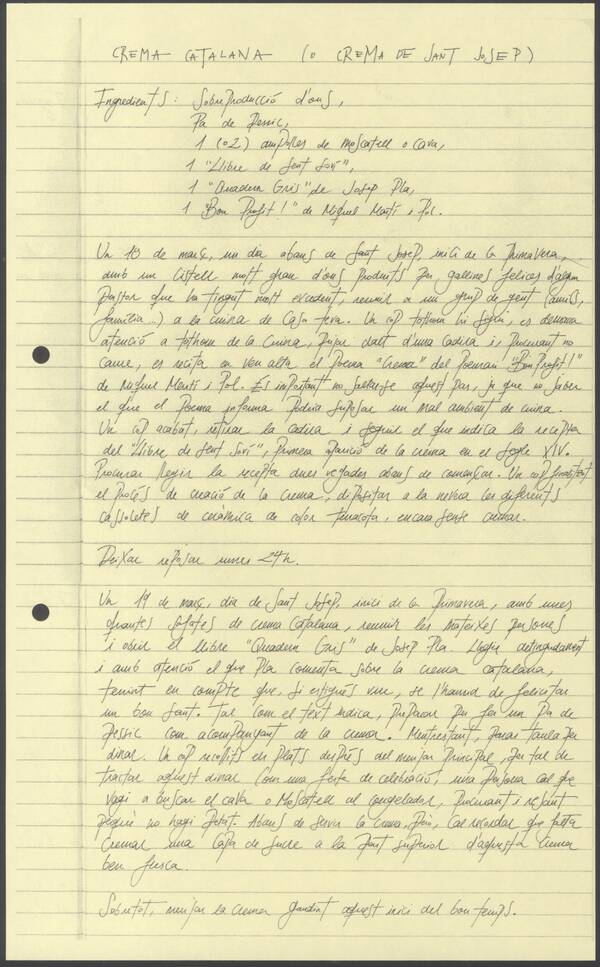 CREMA CATALANA (O CREMA DE SANT JOSEP)
Ingredients: Sobreproducció d'ous,
Pa de Pessic,
1 (o 2) ampolles de moscatell o cava,
1 "Llibre de Sent Soví",
1 "Quadern Gris" de Josep Pla,
1 "Bon Profit!" de Miquel Martí i Pol.
Un 18 de març, un dia abans de Sant Josep, inici de la Primavera,
amb un cistell molt gran d'ous produits per gallines felices d'algun
pastor que ha tingut molt excedent, reunir a un grup de gent (amics,
família...) a la cuina de casa teva. Un cop tothom hi sigui, es demana
atenció a tothom de la cuina, pujar dalt d'una cadira i, procurant no
caure, es recita en veu alta el poema "Crema" del poemari "Bon Profit!"
de Miquel Martí i Pol. És important no saltar-se aquest pas, ja que no saber
el que el poema informa podria suposar un mal ambient de cuina.
Un cop acabat, retirar la cadira i seguir el que indica la recepta
del "Llibre de Sent Soví", primera aparició de la crema en el segle XIV.
Procurar llegir la recepta dues vegades abans de començar. Un cop finalitzat
el procés de creació de la crema, dipositar a la nevera les diferents
cassoletes de ceràmica de color terracota, encara sense cremar.
Deixar reposar unes 24h.
Un 19 de març, dia de Sant Josep, inici de la Primavera, amb unes
quantes safates de crema catalana, reunir les mateixes persones
i obrir el llibre "Quadern Gris" de Josep Pla. Llegir detingudament
i amb atenció el que Pla comenta sobre la crema catalana,
tenint en compte que, si estigués viu, se l'hauria de felicitar
un bon Sant. Tal com el text indica, preparar per fer un Pa de
Pessic com acompanyant de la crema. Mentrestant, parar taula per
dinar. Un cop recollits els plats després del menjar principal, per tal de
tractar aquest dinar com una festa de celebració, una persona cal que
vagi a buscar el cava o Moscatell al congelador, procurant i resant
perquè no hagi petat. Abans de servir la crema, però, cal recordar que falta
cremar una capa de sucre a la part superior d'aquesta crema
ben fresca.
Sobretot, menjar la crema gaudint aquest inici del bon temps.